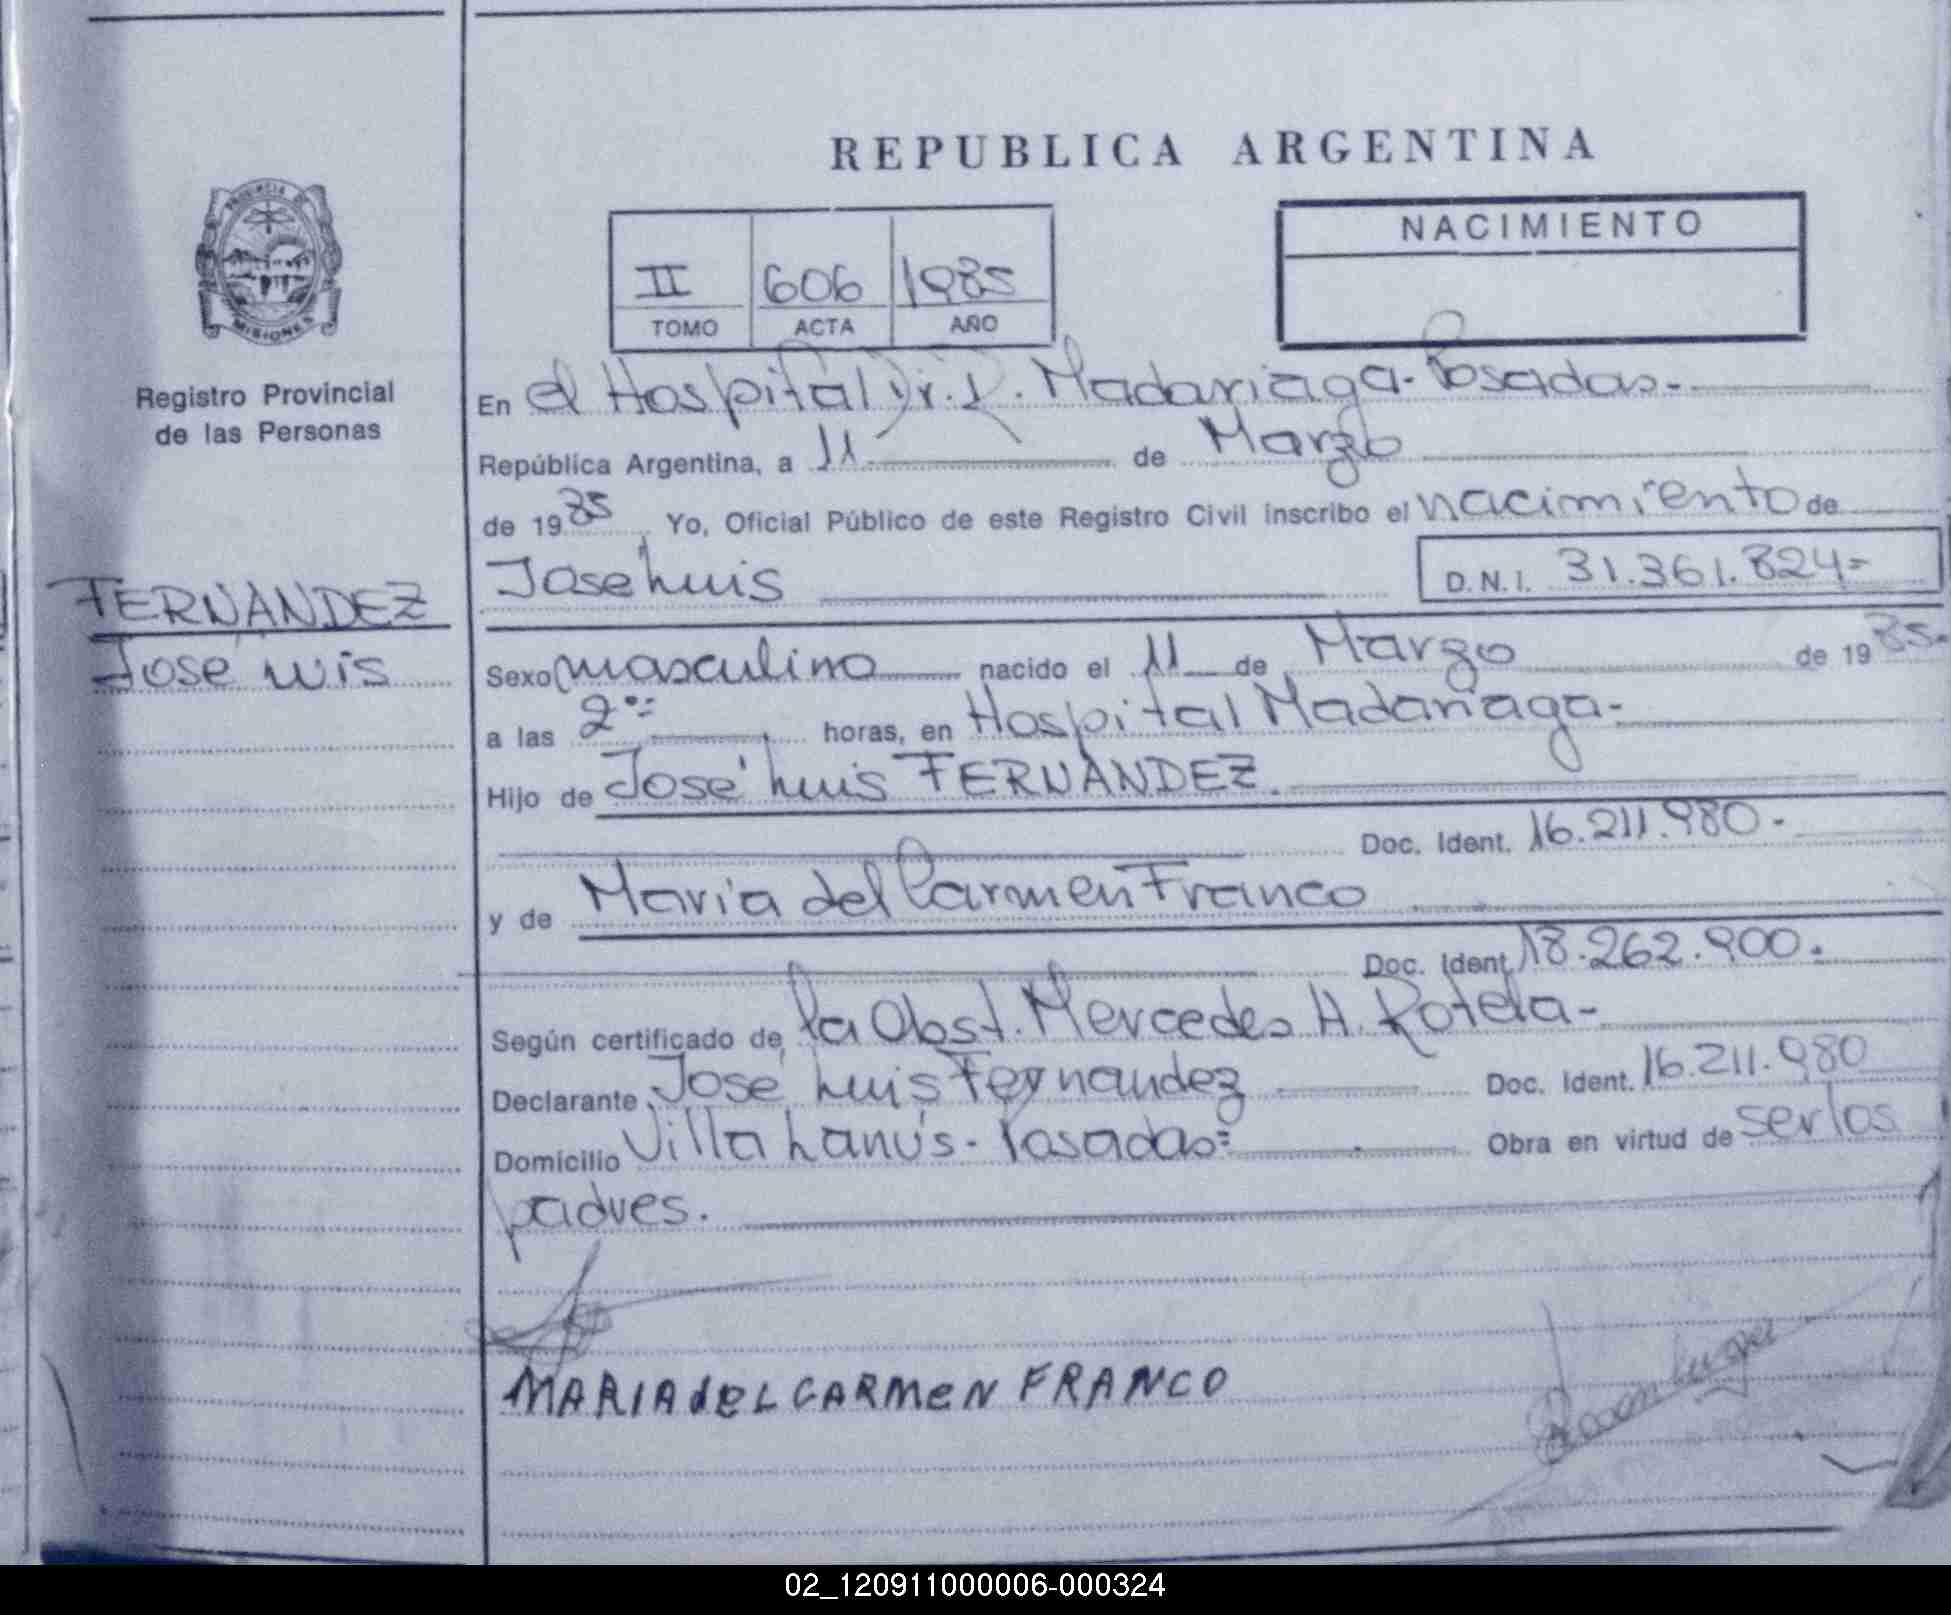 REPUBLICA ARGENTINA
NACIMIENTO
II 606 1985
TOMO ACTA AÑO
PROVINCIA DE
MISIONES
Registro Provincial
de las Personas
FERNANDEZ
Jose Luis
En el Hospital Dr. R. Madariaga - Posadas -
República Argentina, a 11 de Marzo
de 1985 Yo, Oficial Público de este Registro Civil inscribo el nacimiento de
Jose Luis D.N.I. 31.361.824=
Sexo masculino nacido el 11 de Marzo de 1985.
a las 2 horas, en Hospital Madariaga -
Hijo de José Luis FERNANDEZ.
Doc. Ident. 16.211.980.
y de Maria del Carmen Franco
Doc. Ident. 18.262.900.
Según certificado de la Obst. Mercedes H. Rotela -
Declarante José Luis Fernandez Doc. Ident. 16.211.980
Domicilio Villa Lanús - Posadas = Obra en virtud de ser los
padres.
MARIA del CARMEN FRANCO
02_120911000006-000324